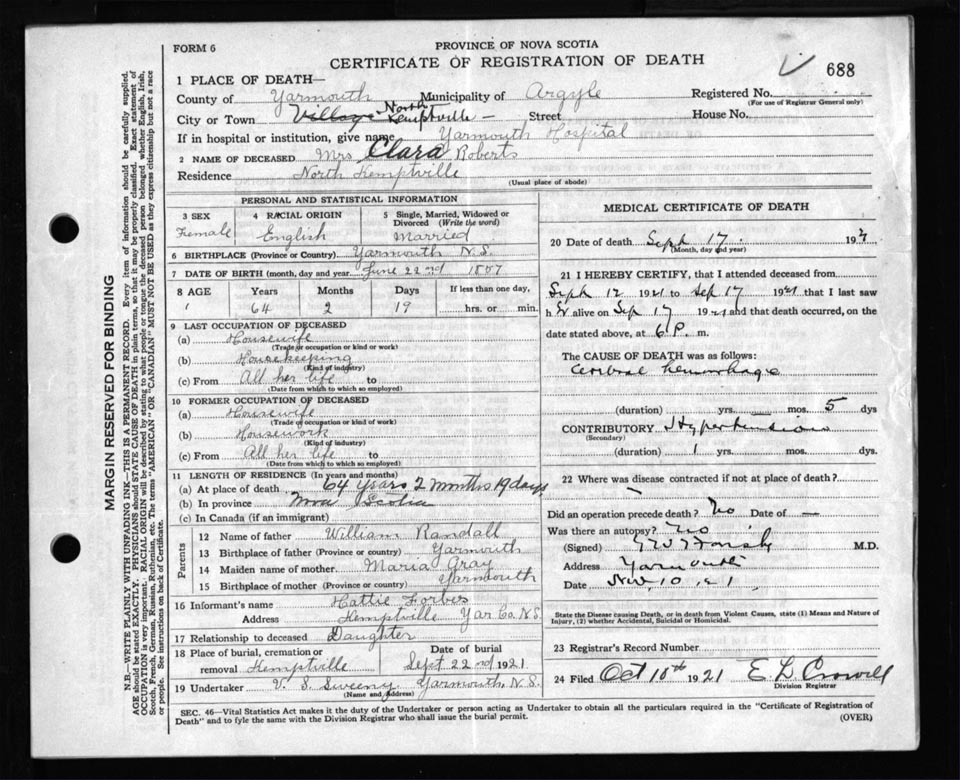 FORM 6
PROVINCE OF NOVA SCOTIA
CERTIFICATE OF REGISTRATION OF DEATH
688
1 PLACE OF DEATH—
County of Yarmouth Municipality of Argyle Registered No.
(For use of Registrar General only)
City or Town Village North Kemptville — Street House No.
If in hospital or institution, give name Yarmouth Hospital
2 NAME OF DECEASED Mrs Clara Roberts
Residence North Kemptville
(Usual place of abode)
PERSONAL AND STATISTICAL INFORMATION
3 SEX 4 RACIAL ORIGIN 5 Single, Married, Widowed or Divorced (Write the word)
Female English Married
6 BIRTHPLACE (Province or Country) Yarmouth N.S.
7 DATE OF BIRTH (month, day and year) June 22nd 1857
8 AGE Years Months Days If less than one day,
64 2 19 hrs. or min.
9 LAST OCCUPATION OF DECEASED
(a) Housewife
(Trade or occupation or kind or work)
(b) Housekeeping
(Kind of industry)
(c) From All her life to
(Date from which to which so employed)
10 FORMER OCCUPATION OF DECEASED
(a) Housewife
(Trade or occupation or kind of work)
(b) Housework
(Kind of industry)
(c) From All her life to
(Date from which to which so employed)
11 LENGTH OF RESIDENCE (In years and months)
(a) At place of death 64 years 2 months 19 days
(b) In province Nova Scotia
(c) In Canada (if an immigrant)
Parents
12 Name of father William Randall
13 Birthplace of father (Province or country) Yarmouth
14 Maiden name of mother Maria Gray
15 Birthplace of mother (Province or country) Yarmouth
16 Informant's name Hattie Forbes
Address Kemptville Yar Co. N.S.
17 Relationship to deceased Daughter
18 Place of burial, cremation or removal Kemptville Date of burial Sept 22nd 1921
19 Undertaker V. S. Sweeny Yarmouth N.S.
(Name and Address)
MEDICAL CERTIFICATE OF DEATH
20 Date of death Sept 17 192
(Month, day and year)
21 I HEREBY CERTIFY, that I attended deceased from
Sept 12 1921 to Sep 17 1921 that I last saw
h er alive on Sep 17 1921 and that death occurred, on the
date stated above, at 6 P. m.
The CAUSE OF DEATH was as follows:
Cerebral hemorrhage
(duration) yrs. — mos. 5 dys
CONTRIBUTORY Hypertension
(Secondary)
(duration) 1 yrs. mos. dys.
22 Where was disease contracted if not at place of death?
—
Did an operation precede death? No Date of —
Was there an autopsy? No
(Signed) M.D.
Address Yarmouth
Date Nov 10
State the Disease causing Death, or in death from Violent Causes, state (1) Means and Nature of
Injury, (2) whether Accidental, Suicidal or Homicidal.
23 Registrar's Record Number
24 Filed Oct 10th 1921 E L Crowell
Division Registrar
SEC. 46—Vital Statistics Act makes it the duty of the Undertaker or person acting as Undertaker to obtain all the particulars required in the "Certificate of Registration of
Death" and to fyle the same with the Division Registrar who shall issue the burial permit.
(OVER)
MARGIN RESERVED FOR BINDING
N.B.—WRITE PLAINLY WITH UNFADING INK—THIS IS A PERMANENT RECORD. Every item of information should be carefully supplied.
AGE should be stated EXACTLY. PHYSICIANS should STATE CAUSE OF DEATH in plain terms, so that it may be properly classified. Exact statement of
OCCUPATION is very important. RACIAL ORIGIN will be described by stating to what people or tongue the deceased person belonged whether English, Irish,
Scotch, French, German, Russian, Ruthenian, etc. The terms "AMERICAN" OR "CANADIAN" MUST NOT BE USED as they express citizenship but not a race
or people. See instructions on back of Certificate.